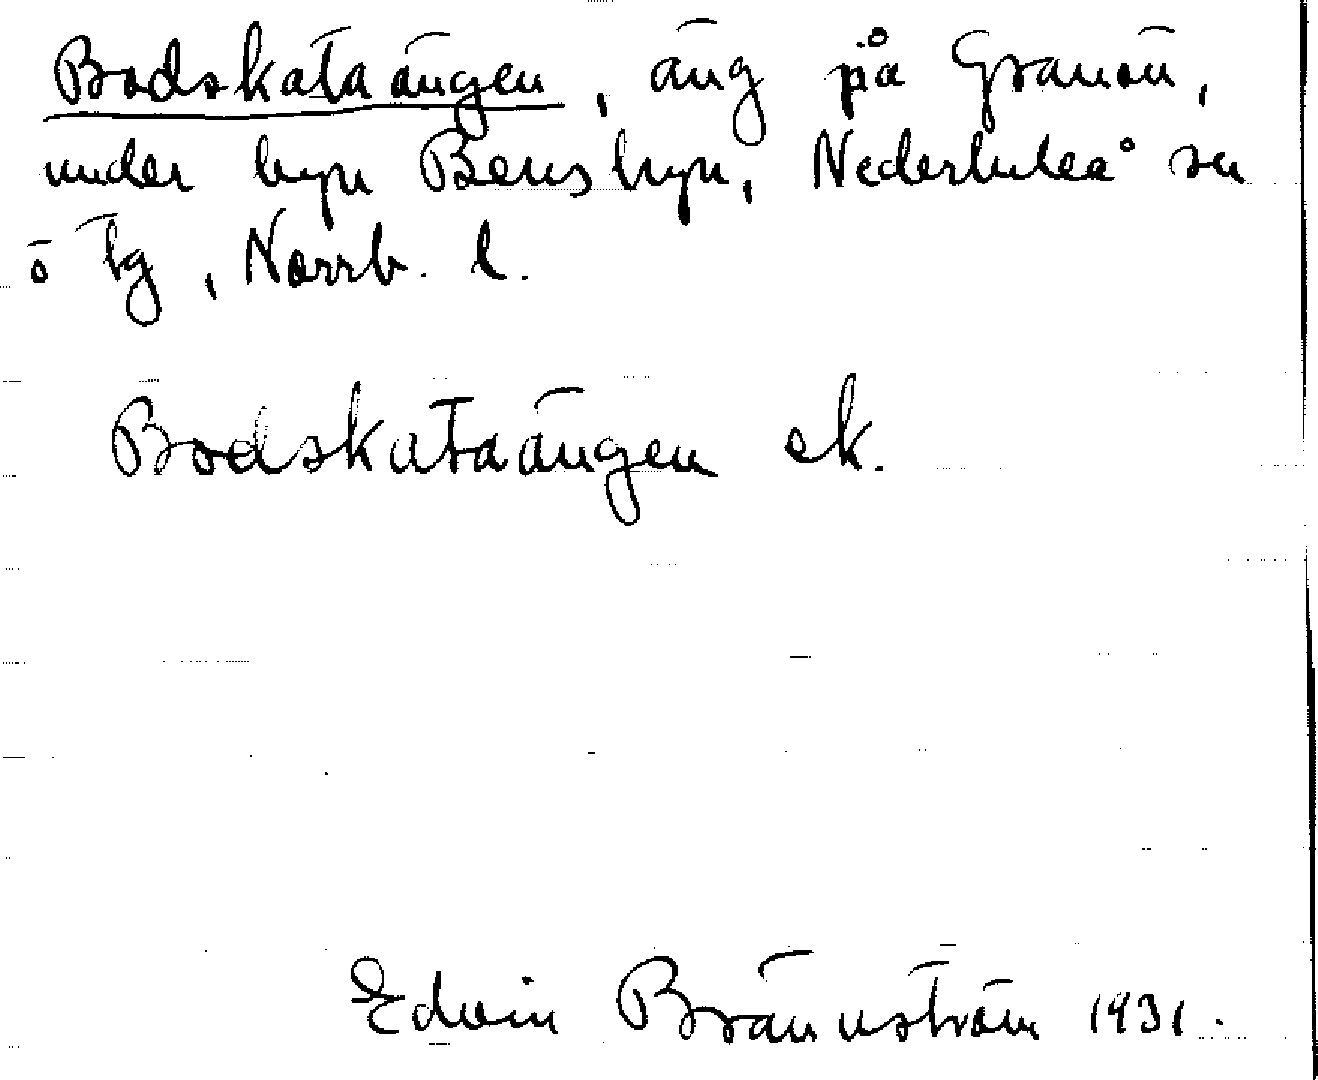 Bodskataängen, äng på Granön,
under byn Bensbyn, Nederluleå sn
ö tg, Norrb. l.
Bodskataängen ek.
Edvin Brännström 1931.